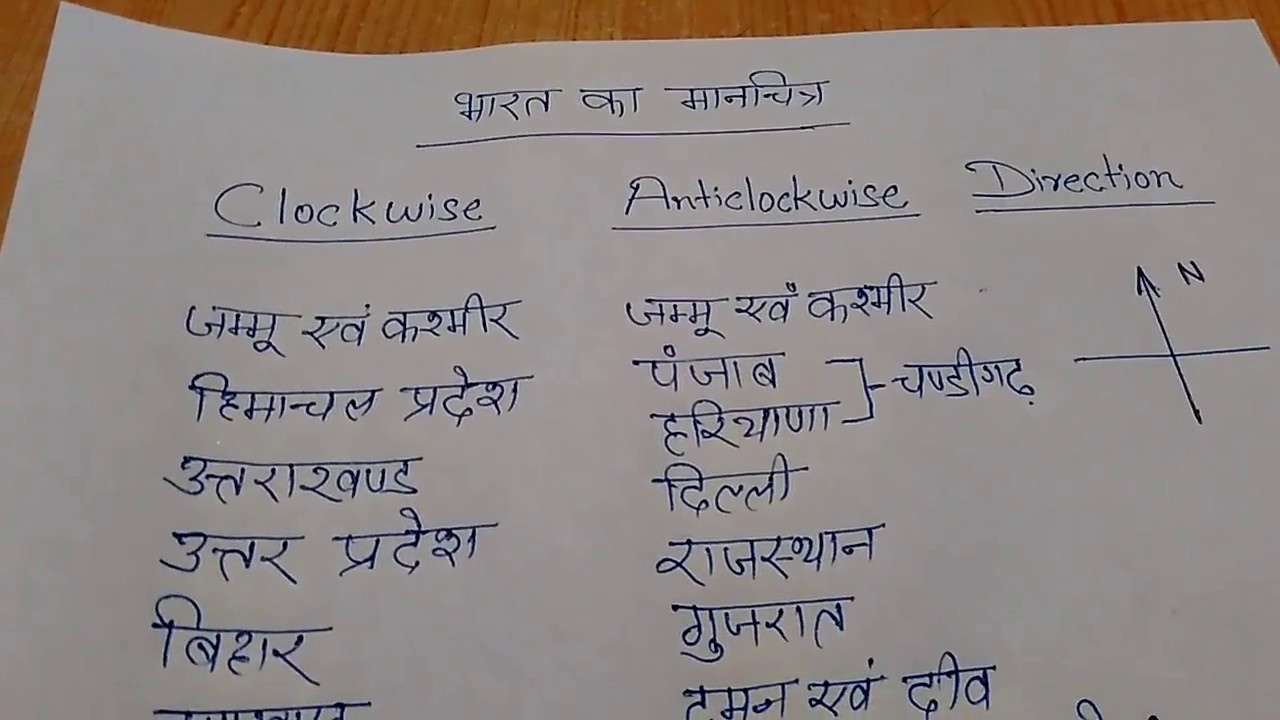 भारत का मानचित्र
Clockwise Anticlockwise Direction
जम्मू एवं कश्मीर जम्मू एवं कश्मीर N
हिमाचल प्रदेश पंजाब
चण्डीगढ़
हरियाणा
उत्तराखण्ड दिल्ली
उत्तर प्रदेश राजस्थान
बिहार गुजरात
दमन एवं दीव